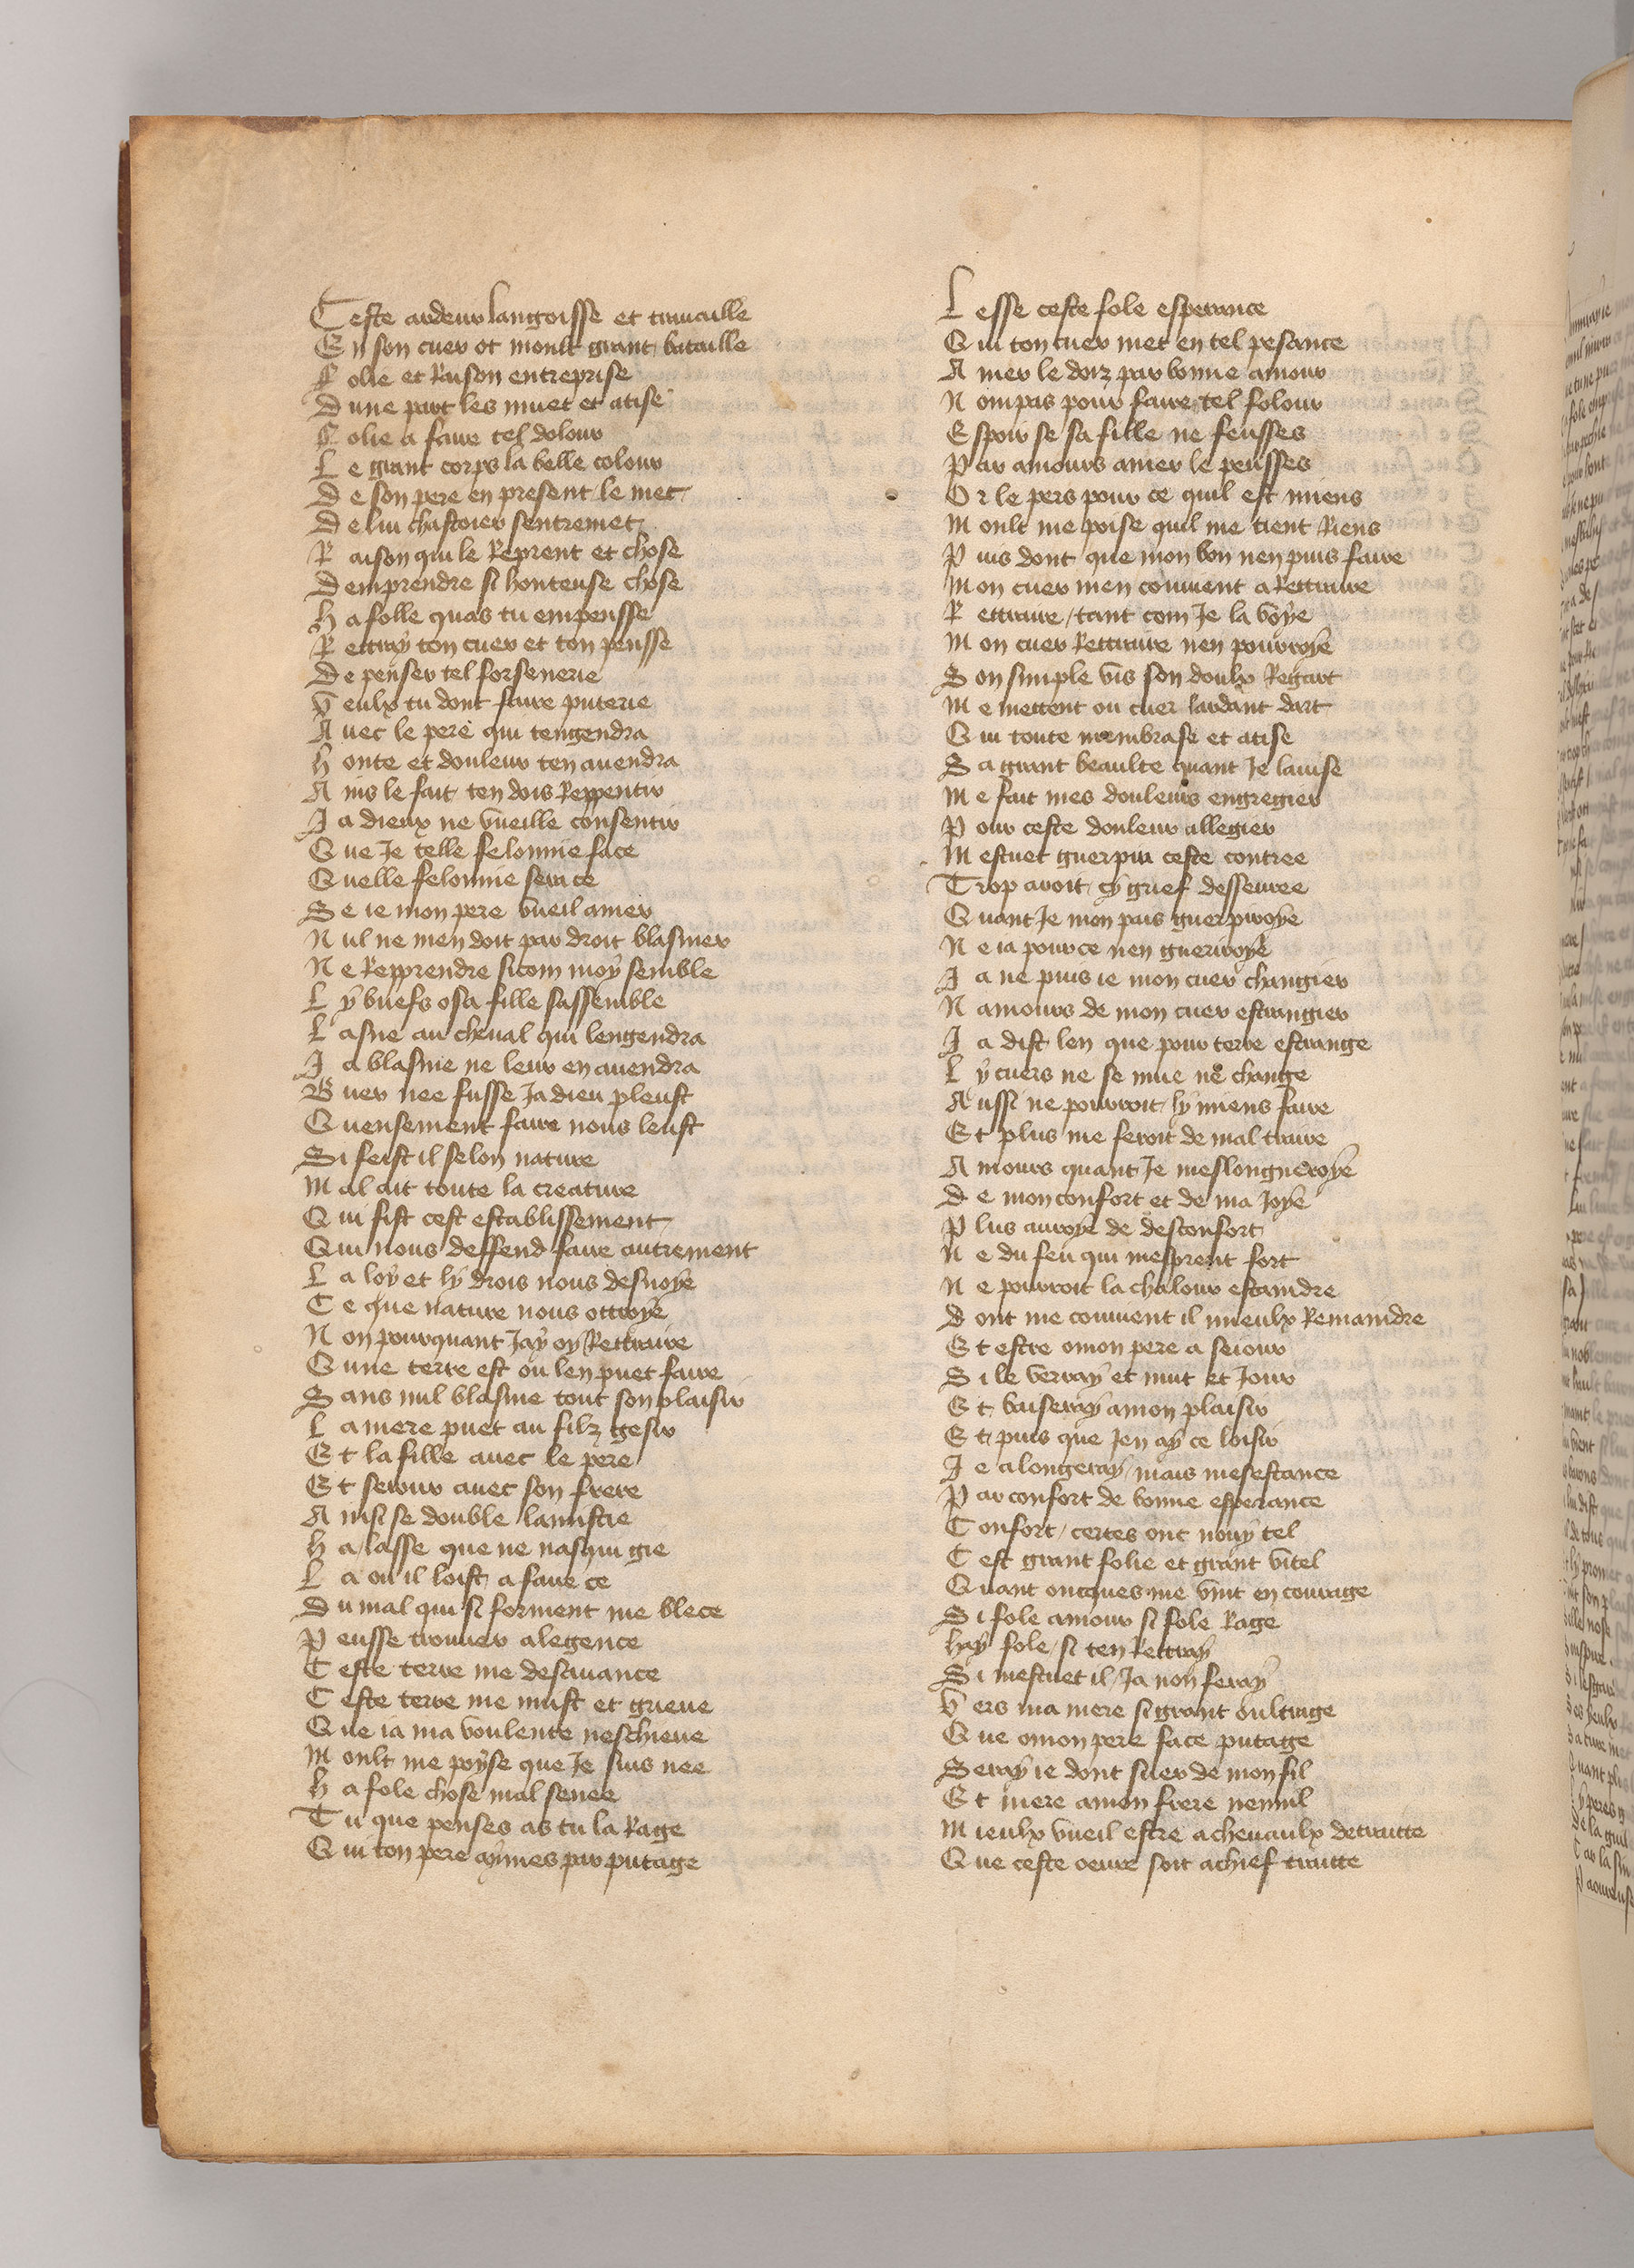 Ceste ardeur langoisse et trauaille
En son cuer ot moult grant bataille
Folie et Raison entreprise
Dune part les muet et atise
Folie a faire tel dolour
Le grant corps la belle colour
De son pere en present le met
De lui chastoier sentremet
Raison qui le Reprent et chose
Demprendre si honteuse chose
Ha folle quas tu empensse
Rettray ton cuer et ton pensse
De penser tel forsenerie
Veulx tu dont faire puterie
Auec le pere qui tengendra
Honte et douleur ten auendra
Ains le fait ten dois Reppentir
Ja dieux ne vueille consentir
Que Je telle felonnie face
Quelle felonnie sera ce
Se ie mon pere vueil amer
Nul ne men doit par droit blasmer
Ne Repprendre sicom moy semble
Ly buefs osa fille sassemble
Lasne au cheual qui lengendra
Ja blasme ne leur en auendra
Buer nee fusse Ja dieu pleust
Quensement faire nous leust
Si feist il selon nature
Mal ait toute la creature
Qui fist cest establissement
Qui nous deffend faire autrement
La loy et ly drois nous desuoye
Ce que nature nous ottroye
Non pourquant Jay oy Rettraire
Qune terre est ou len puet faire
Sans nul blasme tout son plaisir
La mere puet au filz gesir
Et la fille auec le pere
Et serour auec son frere
Ainsi se double lamistie
Ha lasse que ne nasqui gie
La ou il loist a faire ce
Du mal qui si forment me blece
Peusse trouuer alegence
Ceste terre me desauance
Ceste terre me nuist et grieue
Que ia ma voulente neschieue
Moult me poyse que Je suis nee
Ha fole chose mal senee
Tu que penses as tu la Rage
Qui ton pere aymes par putage
Lesse ceste fole esperance
Qui ton cuer met en tel pesance
Amer le doiz par bonne amour
Nompas pour faire tel folour
Espoir se sa fille ne feusses
Par amours amer le peusses
Or le pers pour ce quil est miens
Moult me poise quil me tient Riens
Puis dont que mon bon nen puis faire
Mon cuer men conuient a Rettraire
Rettraire / tant com Je la voye
Mon cuer Rettraire nen pourroye
Son simple vis son doulx Regart
Me mettent ou cuer lardant dart
Qui toute membrase et atise
Sa grant beaulte quant Je lauise
Me fait mes douleurs engregier
Pour ceste douleur allegier
Mestuet guerpir ceste contree
Trop aroit cy grief desseuree
Quant Je mon pais guerpiroye
Ne ia pource nen gueriroye
Ja ne puis ie mon cuer changier
Namours de mon cuer estrangier
Ja dist len que pour terre estrange
Ly cuers ne se mue ne change
Aussi ne pourroit ly miens faire
Et plus me feroit de mal traire
Amours quant Je meslongneroye
De mon confort et de ma Joye
Plus auroye de desconfort
Ne du feu qui mesprent fort
Ne pourroit la chalour estaindre
Dont me conuient il mieulx Remaindre
Et estre o mon pere a seiour
Si le verray et nuit et Jour
Et baiseray a mon plaisir
Et puis que Jen ay ce loisir
Je alongeray / mais mesestance
Par confort de bonne esperance
Confort / certes onc nouy tel
Cest grant folie et grant vitel
Quant oncques me vint en courage
Si fole amour si fole Rage
Hay fole / si ten Rettray
Si mestuet il / Ja non feray
Vers ma mere si grant oultrage
Que o mon pere face putage
Seray ie dont suer de mon fil
Et mere a mon frere nennil
Mieulx vueil estre a cheuaulx detraitte
Que ceste oeure soit a chief traitte